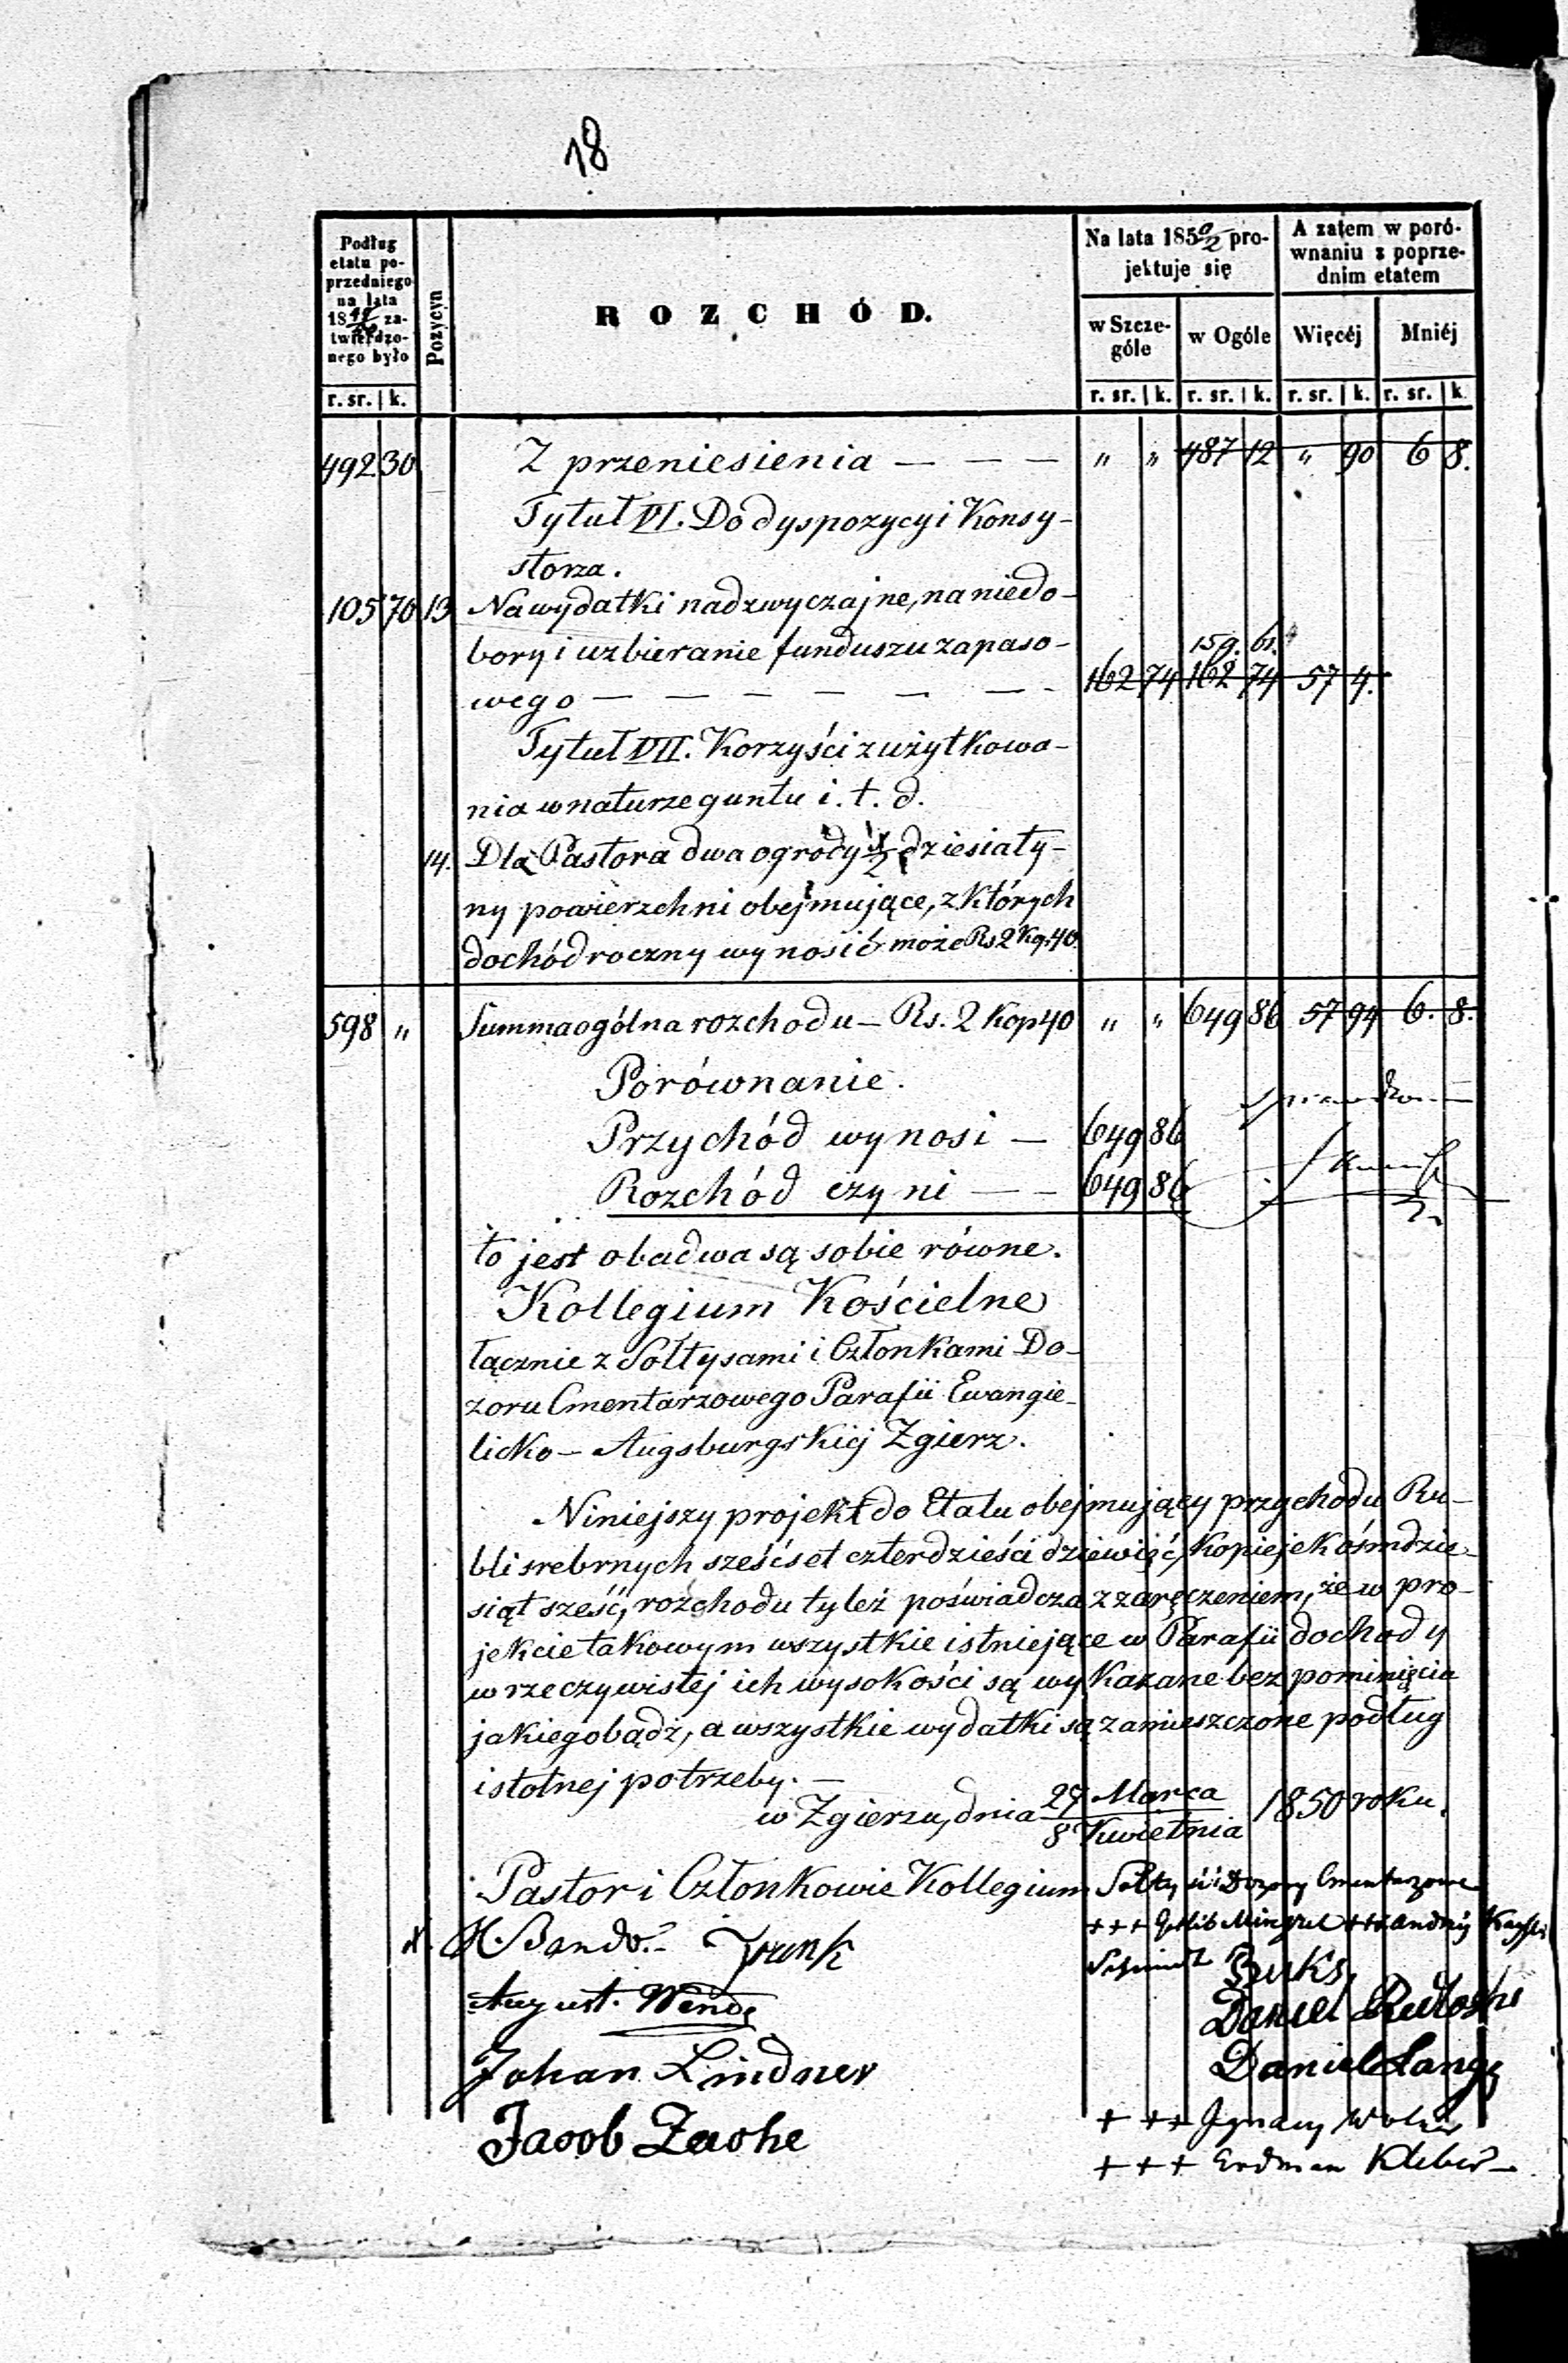 18
Podług etatu poprzedniego na lata 18 zatwierdzonego było
Pozycya
ROZCHÓD.
Na lata 185 0/2 projektuje się
A zatem w porównaniu z poprzednim etatem
w Szczególe w Ogóle Więcéj Mniéj
r. sr. k. r. sr. k. r. sr. k. r. sr. k. r. sr. k.
492 30 Z przeniesienia — — — " " 487 12 " 90 6 8.
Tytuł VI. Do dyspozycyi Konsy-
storza.
105 70 13 Na wydatki nadzwyczajne, na niedo-
bory i uzbieranie funduszu zapaso-
159. 61.
wego — — — — — — - 162 74 162 74 57 4.
Tytuł VII. Korzyści z użytkowa-
nia w naturze guntu i. t. d.
14. Dla Pastora dwa ogrody 1/2 dziesiaty-
ny powierzchni obejmujące, z których
dochód roczny wynosić może Rs 2 Kop. 40
598 " Summa ogólna rozchodu — Rs. 2 Kop 40 " " 649 86 57 94 6. 8.
Porównanie.
Przychód wynosi — 649 86
Rozchód czyni — — 649 86
to jest obadwa są sobie równe.
Kollegium Kościelne
łącznie z Sołtysami i Członkami Do-
zoru Cmentarzowego Parafii Ewangie-
licko – Augsburgskiej Zgierz.
Niniejszy projekt do Etatu obejmujący przychodu Ru-
bli srebrnych sześćset czterdzieści dziewięć, kopiejek ośmdzie-
siąt sześć, rozchodu tyleż poświadcza z zaręczeniem, że w pro-
jekcie takowym wszystkie istniejące w Parafii dochody
w rzeczywistej ich wysokości są wykazane bez pominięcia
jakiegobądź, a wszystkie wydatki są zamieszczone podług
istotnej potrzeby. —
w Zgierzu, dnia 27 Marca / 8 Kwietnia 1850 roku.
Pastor i Członkowie Kollegium
Cmentarzowe
+++ Mintzel +++
Schmidt
Daniel
Daniel Lange
+ ++ Ignacy
+ + + Erdman Kleber
August. Wende
Johan Lindner
Jacob Zache